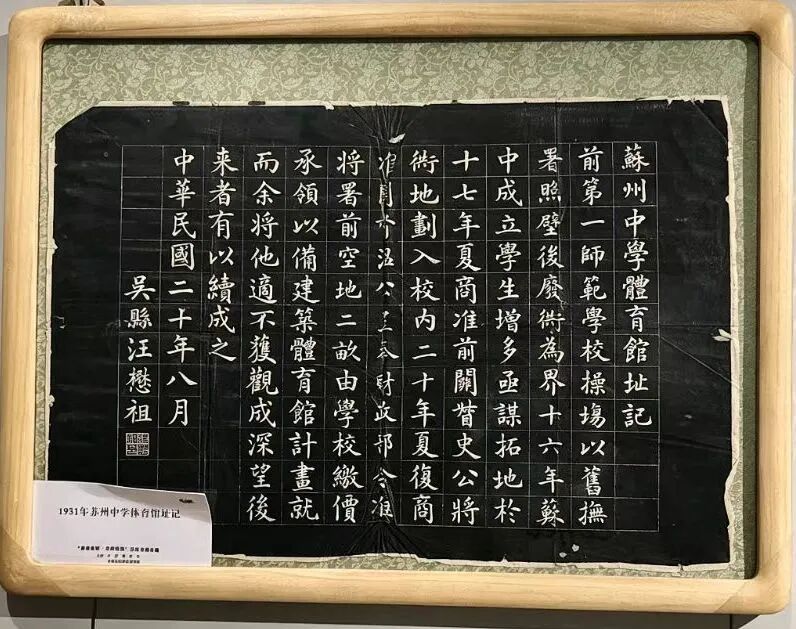 蘇州中學體育館址記
前第一師範學校操塲以舊撫
署照壁後廢衖為界十六年蘇
中成立學生增多亟謀拓地於
十七年夏商准前關督史公將
衖地劃入校內二十年夏復商
准溫公呈奉財政部令准
將署前空地二畝由學校繳價
承領以備建築體育館計畫就
而余將他適不獲觀成深望後
来者有以續成之
中華民國二十年八月
吳縣汪懋祖
1931年苏州中学体育馆址记